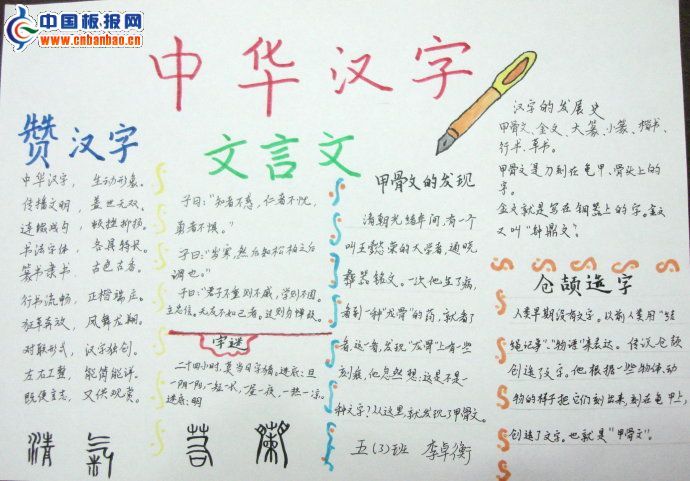 中国板报网
www.cnbanbao.cn
中华汉字
赞汉字
中华汉字，生动形象。
传播文明，盖世无双。
连缀成句，顿挫抑扬。
书法字体，各具特长。
篆书隶书，古色古香。
行书流畅，正楷端庄。
狂草奔放，凤舞龙翔。
对联形式，汉字独创。
左右工整，能简能详。
既便言志，又供观赏。
文言文
子曰："知者不惑，仁者不忧，
勇者不惧。"
子曰："岁寒，然后知松柏之后
凋也。"
子曰："君子不重则不威，学则不固。
主忠信。无友不如己者。过则勿惮改。
字谜
二十四小时，莫当日字猜。谜底：旦
一阴一阳，一短一长，一昼一夜，一热一凉。
谜底：明
甲骨文的发现
清朝光绪年间，有一个
叫王懿荣的大学者，通晓
彝器铭文。一次他生了病，
看到一种"龙骨"的药，就看了
看。这一看，发现"龙骨"上有些
刻痕，他忽然想：这是不是一
种文字？从这里，就发现了甲骨文。
五(3)班 李卓衡
汉字的发展史
甲骨文、金文、大篆、小篆、楷书、
行书、草书。
甲骨文是刀刻在龟甲、骨头上的
字。
金文就是写在铜器上的字。金文
又叫"钟鼎文"。
仓颉造字
人类早期没有文字。以前人类用"结
绳记事"、"物语"来表达。传说仓颉
创造了文字。他根据一些物体、动
物的样子把它们刻出来，刻在龟甲上，
创造了文字。也就是"甲骨文"。
清 氣